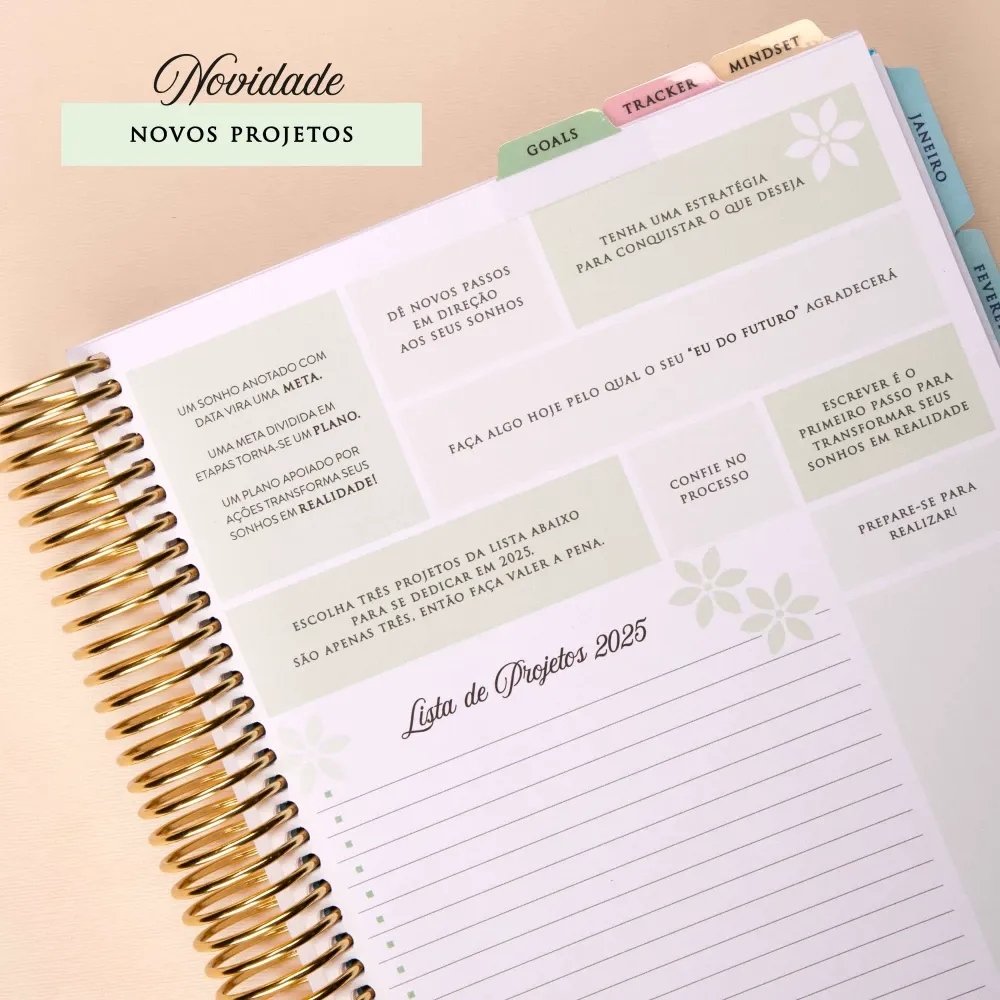 Novidade
NOVOS PROJETOS
GOALS
TRACKER
MINDSET
JANEIRO
TENHA UMA ESTRATÉGIA
PARA CONQUISTAR O QUE DESEJA
DÊ NOVOS PASSOS
EM DIREÇÃO
AOS SEUS SONHOS
UM SONHO ANOTADO COM
DATA VIRA UMA META.
UMA META DIVIDIDA EM
ETAPAS TORNA-SE UM PLANO.
UM PLANO APOIADO POR
AÇÕES TRANSFORMA SEUS
SONHOS EM REALIDADE!
FAÇA ALGO HOJE PELO QUAL O SEU “EU DO FUTURO” AGRADECERÁ
ESCREVER É O
PRIMEIRO PASSO PARA
TRANSFORMAR SEUS
SONHOS EM REALIDADE
CONFIE NO
PROCESSO
PREPARE-SE PARA
REALIZAR!
ESCOLHA TRÊS PROJETOS DA LISTA ABAIXO
PARA SE DEDICAR EM 2025.
SÃO APENAS TRÊS, ENTÃO FAÇA VALER A PENA.
Lista de Projetos 2025